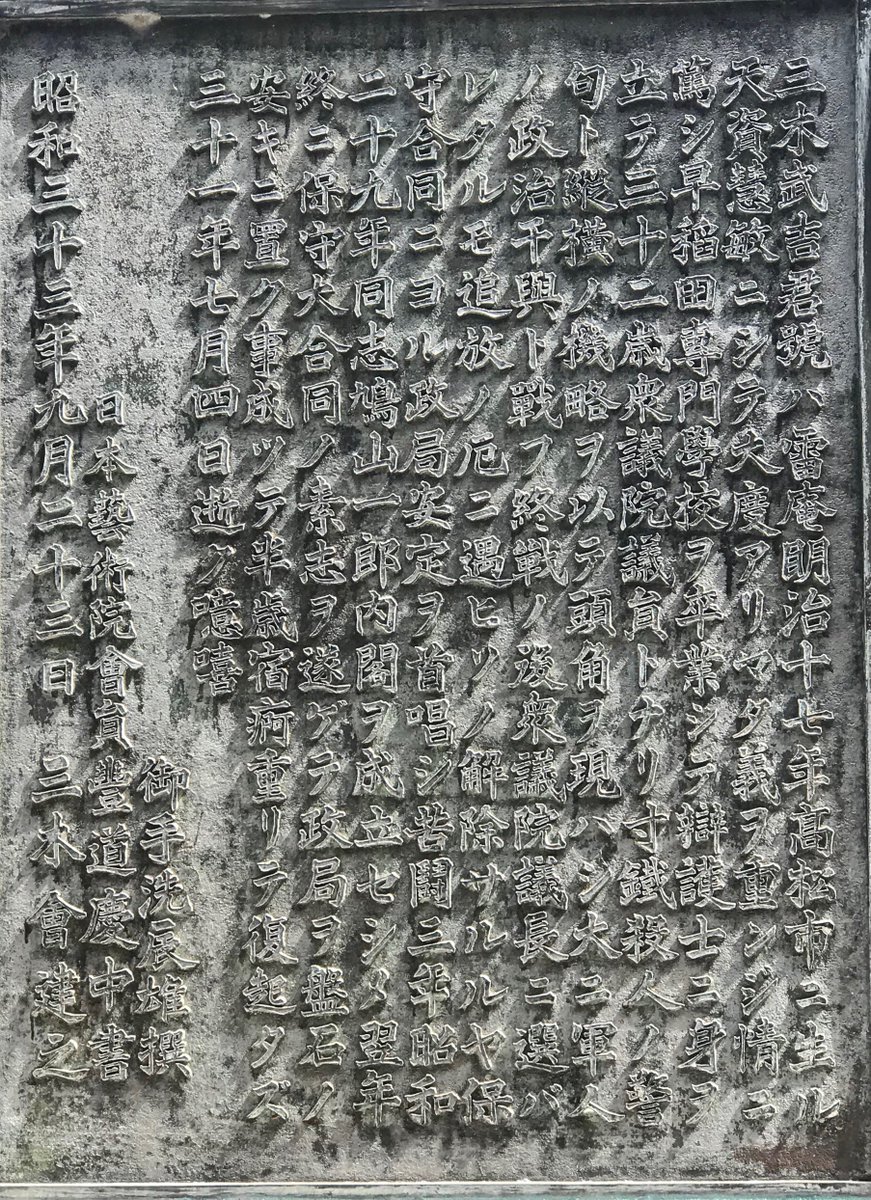 三木武吉君號ハ雷庵明治十七年高松市ニ生ル
天資慧敏ニシテ大度アリマタ義ヲ重ンジ情ニ
篤シ早稲田専門學校ヲ卒業シテ辯護士ニ身ヲ
立テ三十二歳衆議院議員トナリ寸鐵殺人ノ警
句ト縦横ノ機略ヲ以テ頭角ヲ現ハシ大ニ軍人
ノ政治干與ト戦フ終戦ノ後衆議院議長ニ選バ
レタルモ追放ノ厄ニ遇ヒソノ解除サルルヤ保
守合同ニヨル政局安定ヲ首唱シ苦闘三年昭和
二十九年同志鳩山一郎内閣ヲ成立セシメ翌年
終ニ保守大合同ノ素志ヲ遂ゲテ政局ヲ盤石ノ
安キニ置ク事成ツテ半歳宿痾重リテ復起タズ
三十一年七月四日逝ク噫嘻
御手洗辰雄撰
日本藝術院會員豊道慶中書
昭和三十三年九月二十三日 三木會建之